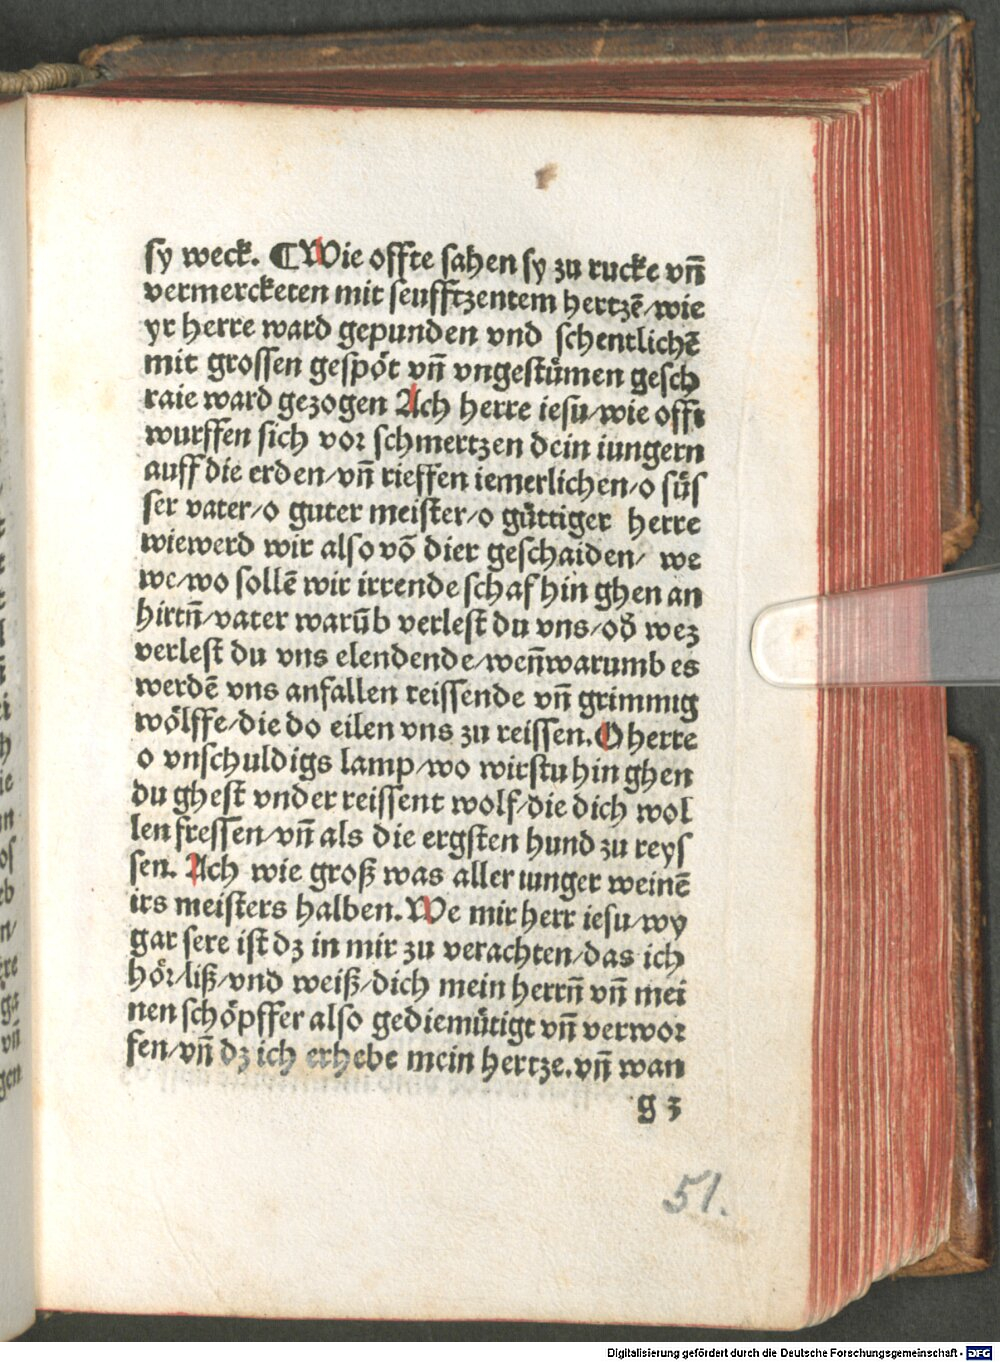 sy weck. ¶ Wie offte sahen sy zu rucke vñ
vermercketen mit seufftzentem hertzē/wie
yr herre ward gepunden vnd schentlichē
mit grossen gespöt vñ vngestümen gesch
raie ward gezogen Ach herre iesu/wie offt
wurffen sich vor schmertzen dein iungern
auff die erden/vñ rieffen iemerlichen/o süs
ser vater/o guter meister/o güttiger herre
wiewerd wir also vō dier geschaiden/ we
we/wo sollē wir irrende schaf hin ghen an
hirtñ/vater warūb verlest du vns/od̄ wez
verlest du vns elendende/weñwarumb es
werdē vns anfallen reissende vñ grimmig
wölffe/die do eilen vns zu reissen. O herre
o vnschuldigs lamp/wo wirstu hin ghen
du ghest vnder reissent wolf/die dich wol
len fressen/vñ als die ergsten hund zu reys
sen. Ach wie groß was aller iunger weinē
irs meisters halben. We mir herr iesu/wy
gar sere ist dz in mir zu verachten/das ich
hör/liß/vnd weiß/dich mein herrñ vñ mei
nen schöpffer also gediemütigt vñ verwor
fen/vñ dz ich erhebe mein hertze. vñ wan
g 3
51.
Digitalisierung gefördert durch die Deutsche Forschungsgemeinschaft - DFG